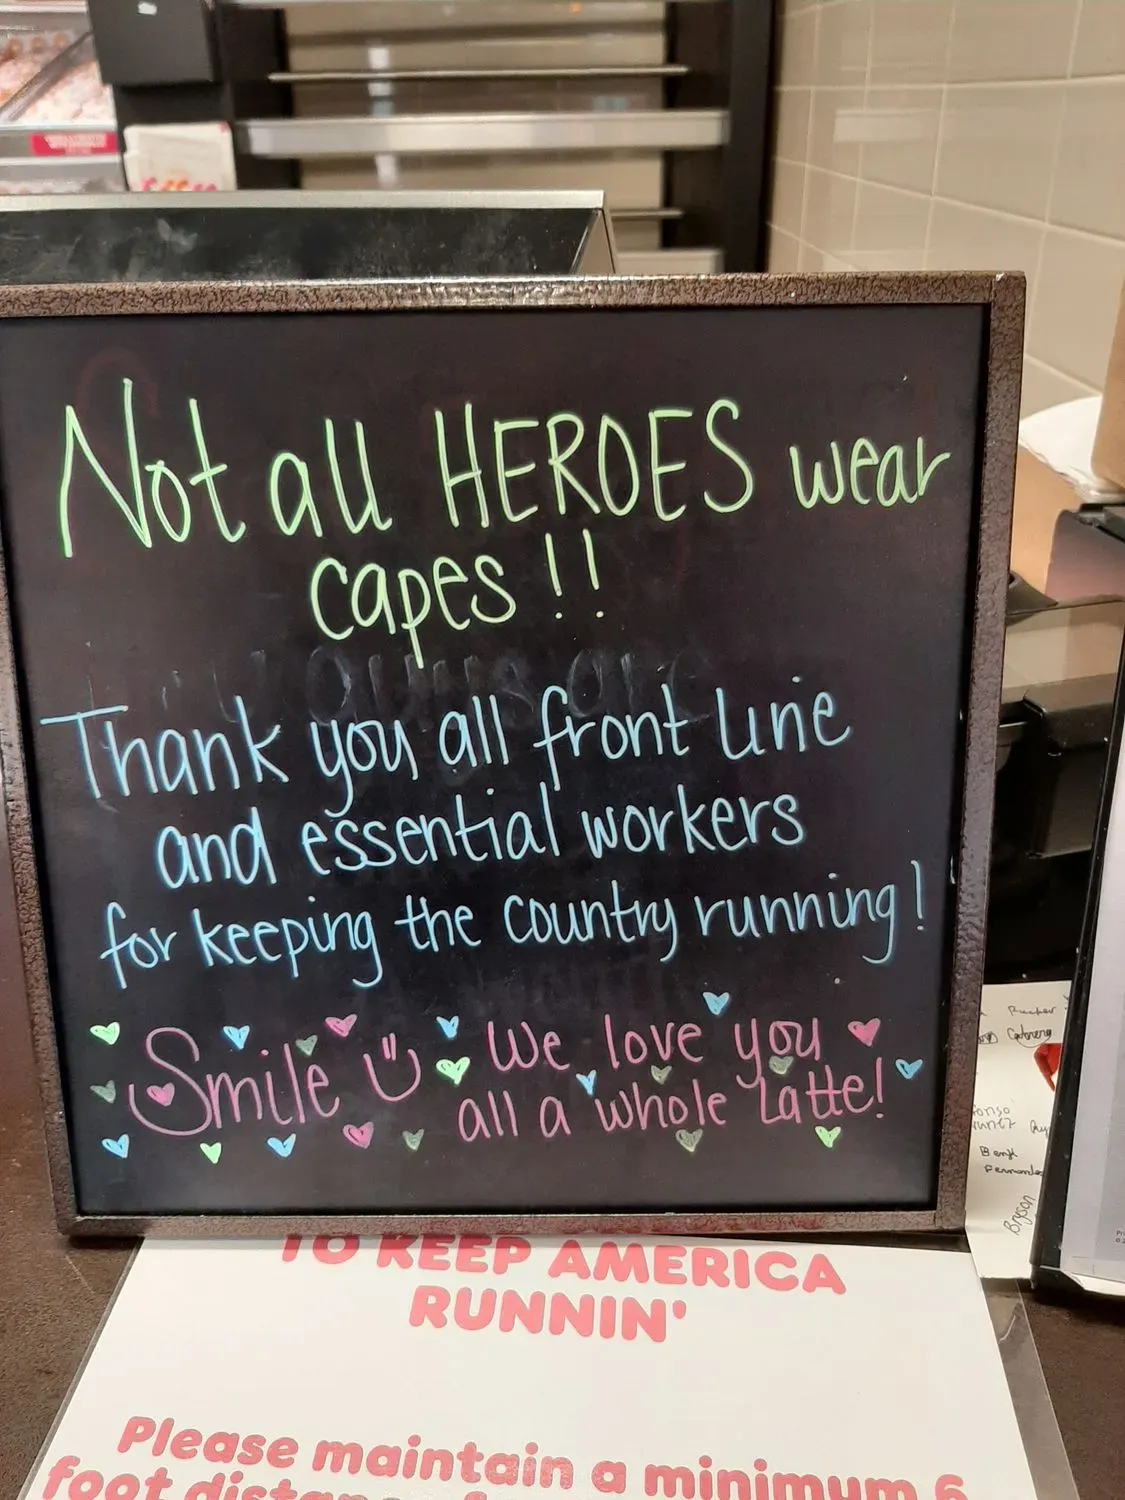 Not all HEROES wear
capes!!
Thank you all front line
and essential workers
for keeping the country running!
Smile We love you
all a whole Latte!
TO KEEP AMERICA
RUNNIN'
Please maintain a minimum 6
foot
Bryson